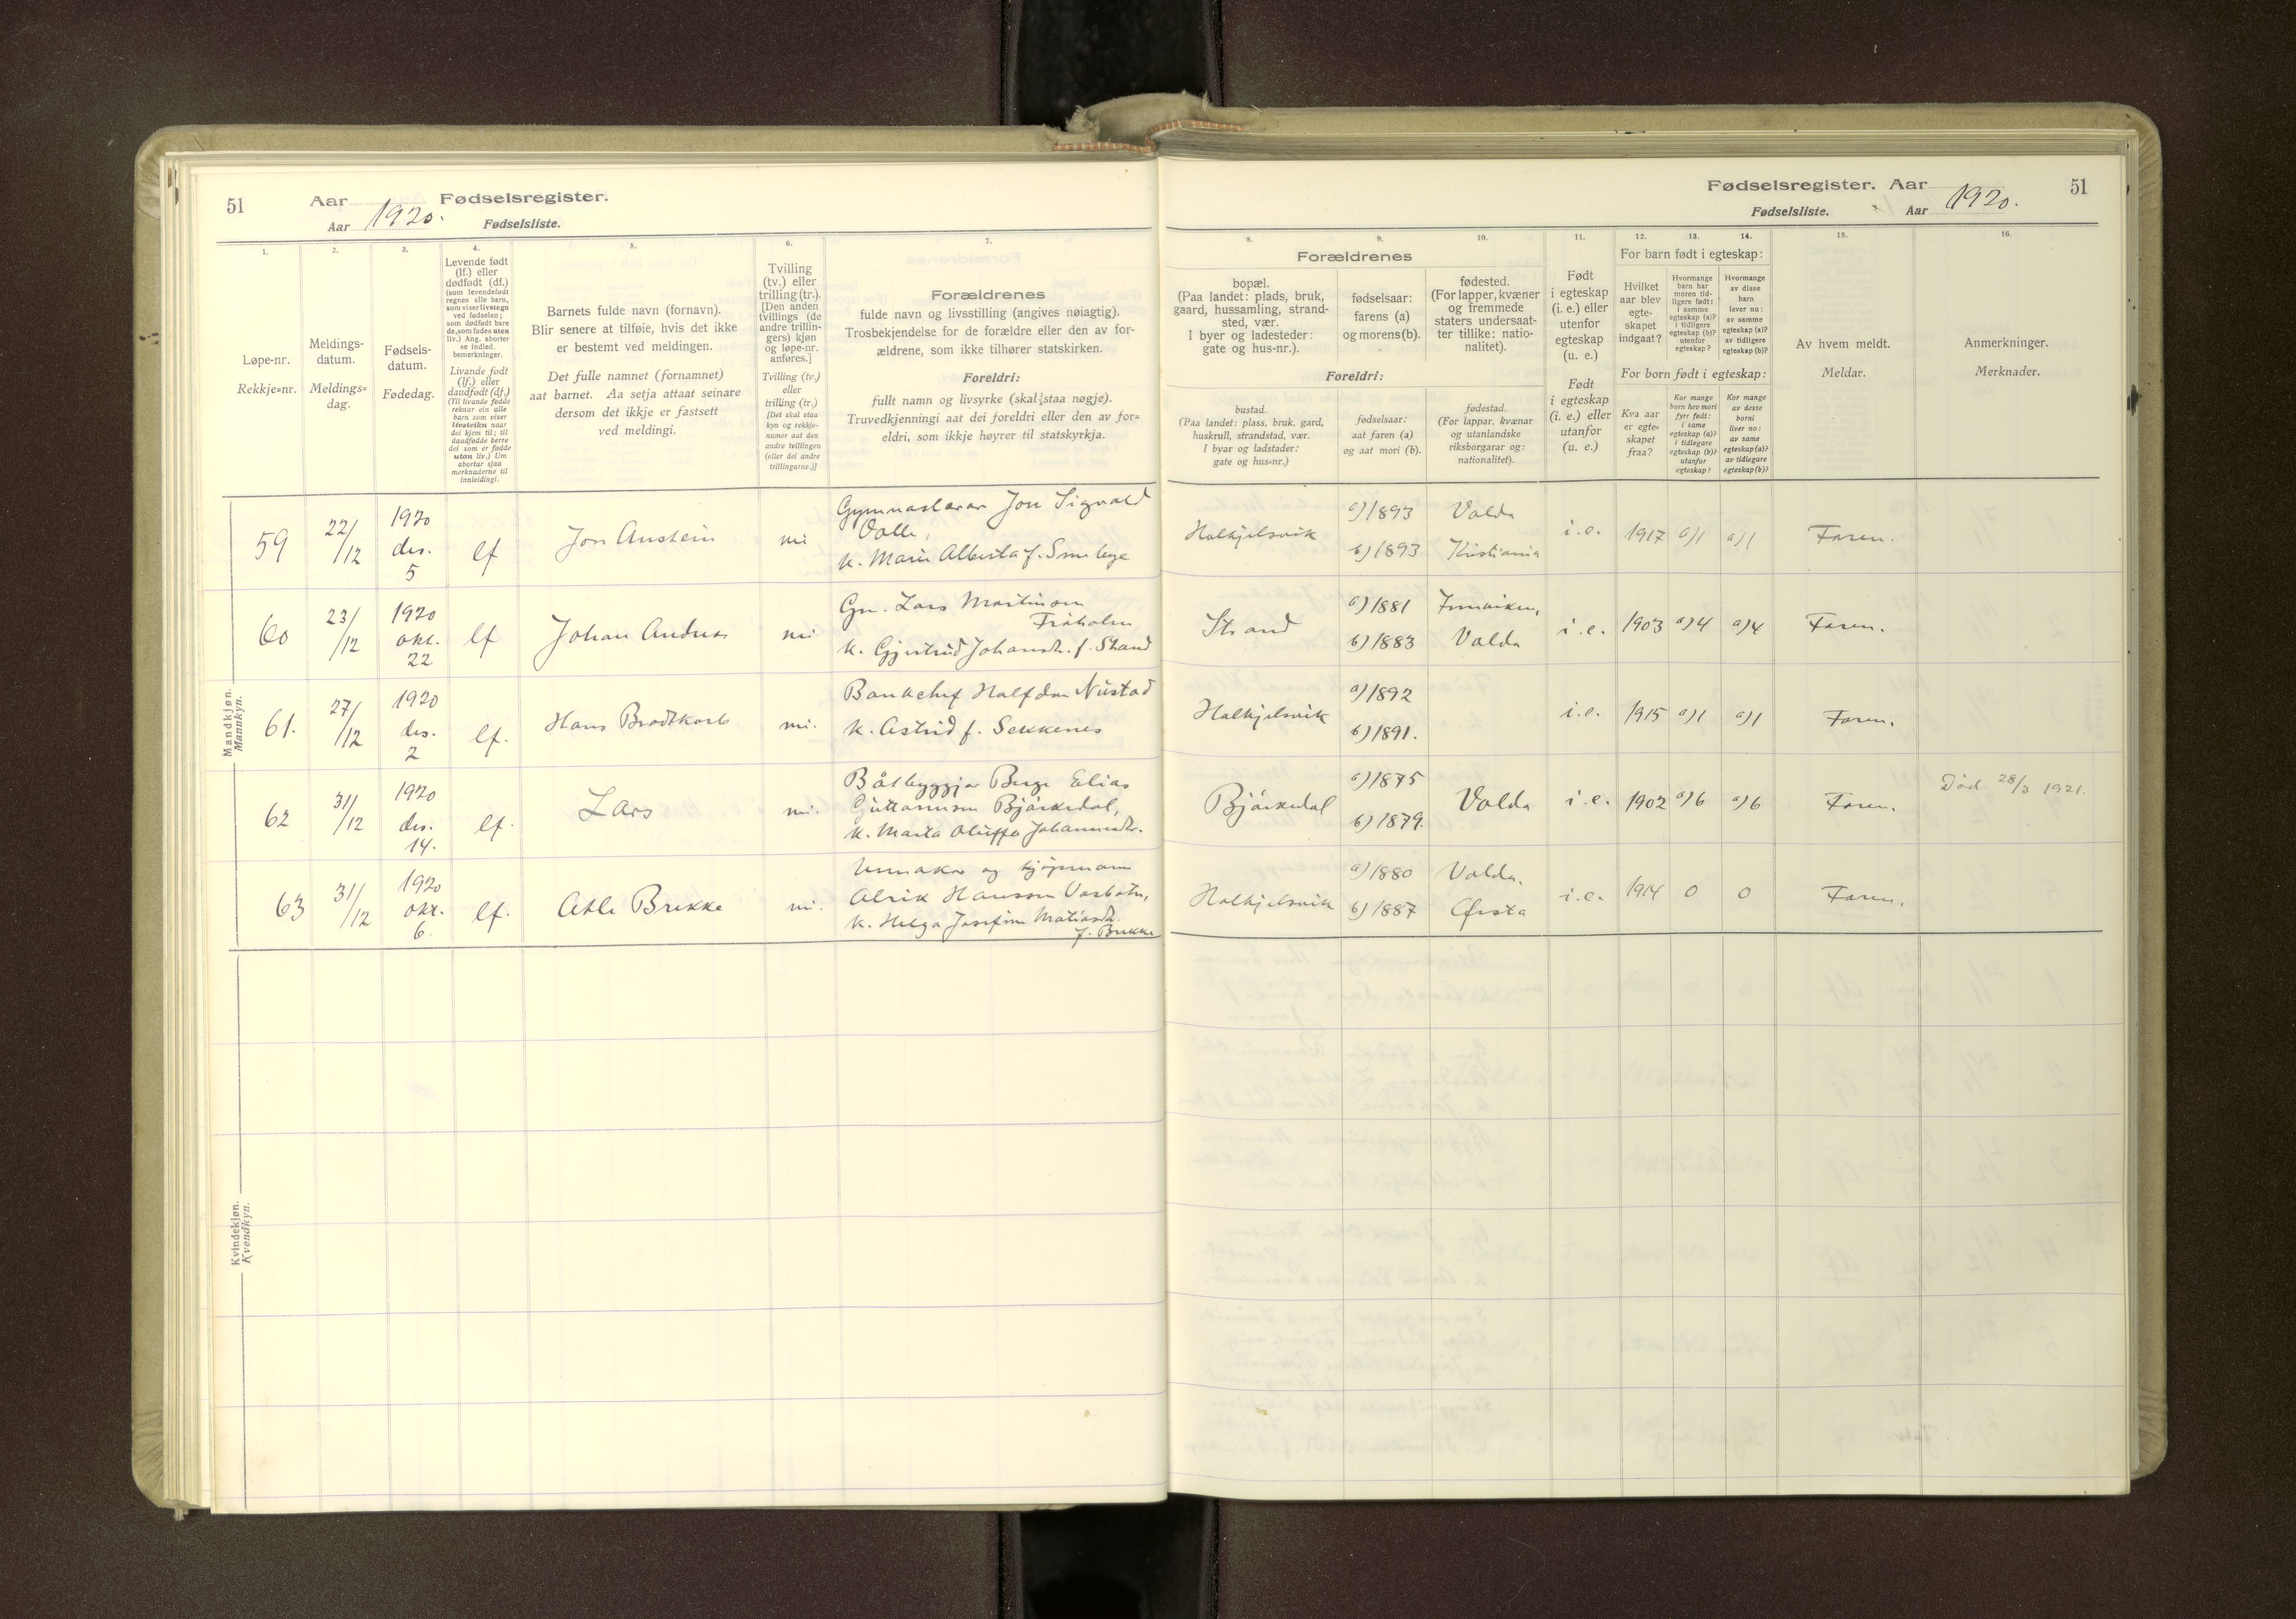 51
Aar 1920. Fødselsregister.
Aar Fødselsliste.
1.
2.
3.
4.
5.
6.
7.
Løpe-nr.
Rekkje=nr.
Meldings-
datum.
Meldings=
dag.
Fødsels-
datum.
Fødedag.
Levende født
(lf.) eller
dødfødt (df.)
(som levendefødt
regnes alle barn,
som viser livstegn
ved fødselen;
som dødfødt bare
de, som fødes uten
liv.) Ang. aborter
se indled.
bemerkninger.
Livande født
(lf.) eller
daudfødt (df.)
(Til livande fødde
reknar ein alle
barn som viser
livsteikn naar
dei kjem til; til
daudfødde berre
dei som er fødde
utan liv.) Um
abortar sjaa
merknaderne til
innleidingi.
Barnets fulde navn (fornavn).
Blir senere at tilføie, hvis det ikke
er bestemt ved meldingen.
Det fulle namnet (fornamnet)
aat barnet. Aa setja attaat seinare
dersom det ikkje er fastsett
ved meldingi.
Tvilling
(tv.) eller
trilling (tr.).
[Den anden
tvillings (de
andre trillin-
gers) kjøn
og løpe-nr.
anføres.]
Tvilling (tv.)
eller
trilling (tr.)
[Det skal staa
kyn og rekkje-
numer aat den
andre tvillingen
(eller dei andre
trillingarne.)]
Forældrenes
fulde navn og livsstilling (angives nøiagtig).
Trosbekjendelse for de forældre eller den av for-
ældrene, som ikke tilhører statskirken.
Foreldri:
fullt namn og livsyrke (skal staa nøgje).
Truvedkjenningi aat dei foreldri eller den av for-
eldri, som ikkje høyrer til statskyrkja.
Mandkjøn.
Mannkyn.
59
22/12
1920
des.
5
lf
Jon Austein
nei
Gymnaslærar Jon Sigvald
Valle,
k. Marie Alberta f. Smebye
60
23/12
1920
okt.
22
lf
Johan Andreas
nei.
Gm. Lars Martinson
Frøholm
k. Gjertrud Johansdt. f. Strand
61.
27/12
1920
des.
2
lf.
Hans Brodtkorb
nei.
Bankchef Halfdan Nustad
k. Astrid f. Sekkenes
62
31/12
1920
des.
14.
lf.
Lars
nei.
Båtbyggjar Berge Elias
Guttormson Bjørkedal,
k. Marta Oluffa Johannesdtr.
63
31/12
1920
okt.
6.
lf.
Atle Brekke
nei.
Urmakar og kjøpmann
Alrik Hansson Vasbotn,
k. Helga Josefine Matiasdt.
f. Brekke
Kvindekjøn.
Kvendkyn.
Fødselsregister. Aar 1920. 51
Fødselsliste. Aar
8.
9.
10.
11.
12.
13.
14.
15.
16.
Forældrenes
bopæl.
(Paa landet: plads, bruk,
gaard, hussamling, strand-
sted, vær.
I byer og ladesteder:
gate og hus-nr.).
fødselsaar:
farens (a)
og morens (b).
fødested.
(For lapper, kvæner
og fremmede
staters undersaat-
ter tillike: natio-
nalitet).
Foreldri:
bustad.
(Paa landet: plass, bruk, gard,
huskrull, strandstad, vær.
I byar og ladstader:
gate og hus=nr.)
fødselsaar:
aat faren (a)
og aat mori (b).
fødestad.
(For lappar, kvænar
og utanlandske
riksborgarar og:
nationalitet).
Født
i egteskap
(i. e.) eller
utenfor
egteskap
(u. e.)
Født
i egteskap
(i. e.) eller
utanfor
(u. e.)
For barn født i egteskap:
Hvilket
aar blev
egte-
skapet
indgaat?
Hvormange
barn har
moren tid-
ligere født:
i samme
egteskap (a)?
i tidligere
egteskap (b)?
utenfor
egteskap?
Hvormange
av disse
barn
lever nu:
av samme
egteskap (a)?
av tidligere
egteskap (b)?
For born født i egteskap:
Kva aar
er egte=
skapet
fraa?
Kor mange
born hev mori
fyrr født:
i same
egteskap (a)?
i tidlegare
egteskap (b)?
utanfor
egteskap?
Kor mange
av desse
borni
liver no:
av same
egteskap (a)?
av tidlegare
egteskap (b)?
Av hvem meldt.
Meldar.
Anmerkninger.
Merknader.
Halkjelsvik
a) 1893
b) 1893
Volda
Kristiania
i.e.
1917
a) 1
a) 1
Faren.
Strand
a) 1881
b) 1883
Innviken,
Volda
i.e.
1903
a) 4
a) 4
Faren.
Halkjelsvik
a) 1892
b) 1891.
i.e.
1915
a) 1
a) 1
Faren.
Bjørkedal
a) 1875
b) 1879.
Volda
i.e.
1902
a) 6
a) 6
Faren.
Død 28/3 1921.
Halkjelsvik
a) 1880
b) 1887
Volda.
Ørsta
i.e.
1914
0
0
Faren.